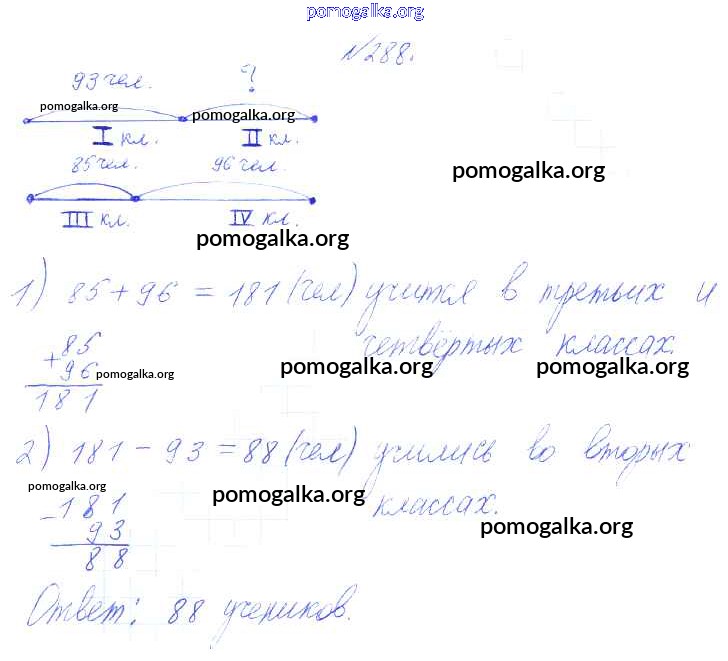 pomogalka.org
№288.
93 чел. ?
pomogalka.org pomogalka.org
I кл. II кл.
85 чел. 96 чел.
pomogalka.org
III кл. IV кл.
pomogalka.org
1) 85 + 96 = 181 (чел) учится в третьих и
четвёртых классах.
+85
96
pomogalka.org pomogalka.org pomogalka.org
181
2) 181 - 93 = 88 (чел) учились во вторых
классах.
pomogalka.org pomogalka.org
-181
93
pomogalka.org
88
Ответ: 88 учеников.